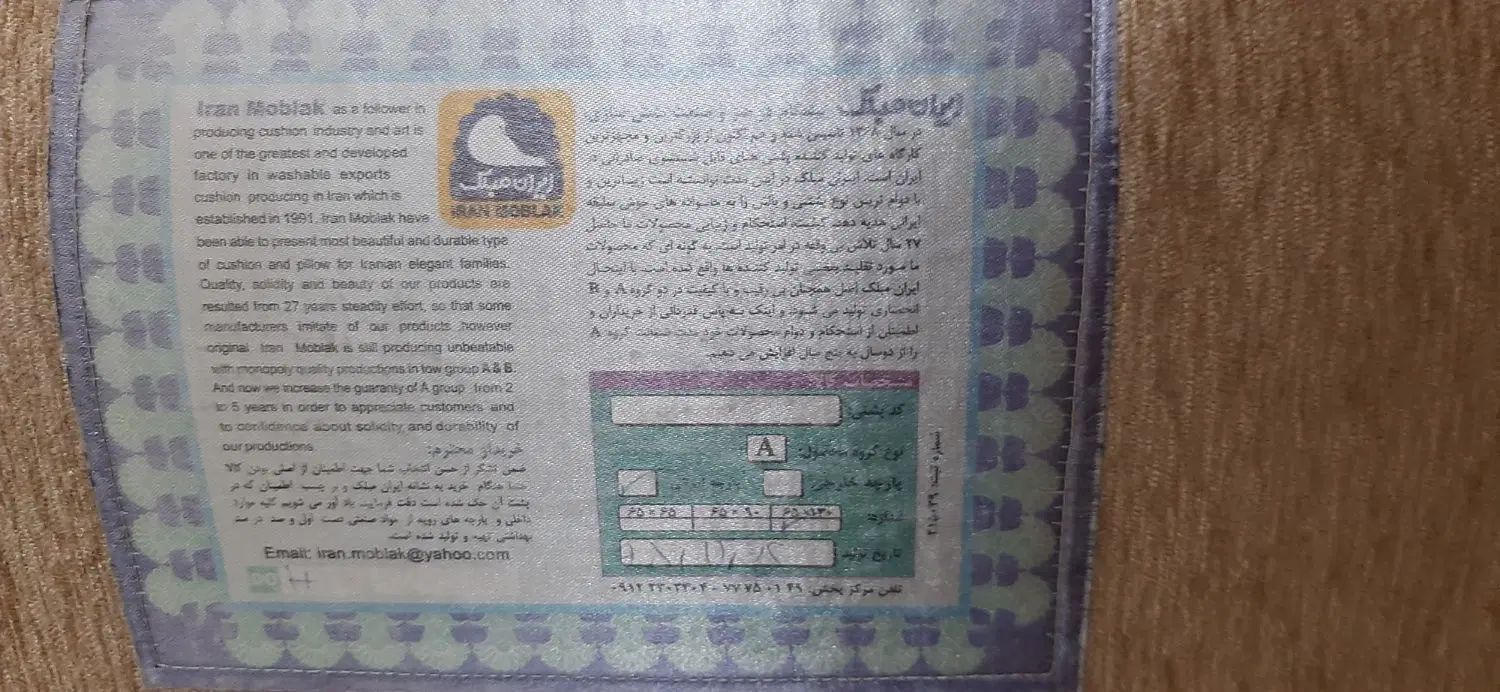 Iran Moblak as a follower in
producing cushion industry and art is
one of the greatest and developed
factory in washable exports
cushion producing in Iran which is
established in 1991. Iran Moblak have
been able to present most beautiful and durable type
of cushion and pillow for Iranian elegant families.
Quality, solidity and beauty of our products are
resulted from 27 years steadity effort, so that some
manufacturers imitate of our products however
original Iran Moblak is still producing unbeatable
with monopoly quality productions in tow group A & B.
And now we increase the guaranty of A group from 2
to 5 years in order to appreciate customers and
to confidence about solidity and durability of
our productions.
خریدار محترم:
ضمن تشکر از حسن انتخاب شما جهت اطمینان از اصلی بودن کالا
هنگام خرید به نشانه ایران مبلک و بر چسب اطمینان که در
پشت آن حک شده است دقت فرمایید. یاد آور می شویم کلیه موارد
داخلی و پارچه های رویه از مواد صنعتی دست اول و صد در صد
بهداشتی تهیه و تولید شده است.
Email: iran.moblak@yahoo.com
ایران مبلک
IRAN MOBLAK
ایران مبلک
در سال ۱۳۶۸ تاسیس شده و هم اکنون از بزرگترین و مجهزترین
کارگاه های تولید کننده پشتی های قابل شستشوی صادراتی در
ایران است. ایران مبلک در این مدت توانسته است زیباترین و
با دوام ترین نوع پشتی و بالش را به خانواده های خوش سلیقه
ایرانی هدیه دهد. کیفیت، استحکام و زیبایی محصولات ما حاصل
۲۷ سال تلاش بی وقفه در امر تولید است. به گونه ای که محصولات
ما مورد تقلید بعضی تولید کننده ها واقع شده است. با اینحال
ایران مبلک اصل همچنان بی رقیب و با کیفیت در دو گروه A و B
انحصاری تولید می شود. و اینک به پاس قدردانی از خریداران و
اطمینان از استحکام و دوام محصولات خود مدت ضمانت گروه A
را از دوسال به پنج سال افزایش می دهیم.
کد پشتی:
نوع گروه محصول: A
پارچه خارجی: پارچه ایرانی
۶۵×۱۳۰ ۶۵×۹۰ ۶۵×۶۵
تاریخ تولید:
شماره ثبت:
تلفن مرکز پخش: ۷۷۷۵۰۱۴۹ - ۰۹۱۲۲۳۰۳۳۰۴